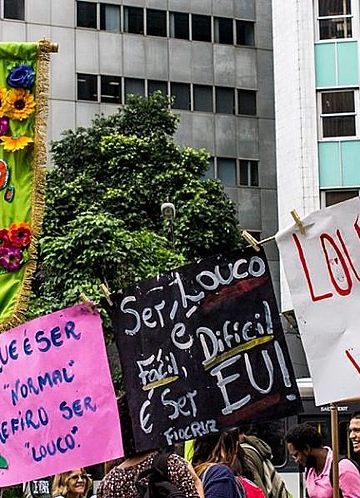 UE É SER
"NORMAL"
REFIRO SER
"LOUCO".
SER, LOUCO
É
FáCIL,
DiFíCil
É SER EU!
FIOCRUZ
LOU